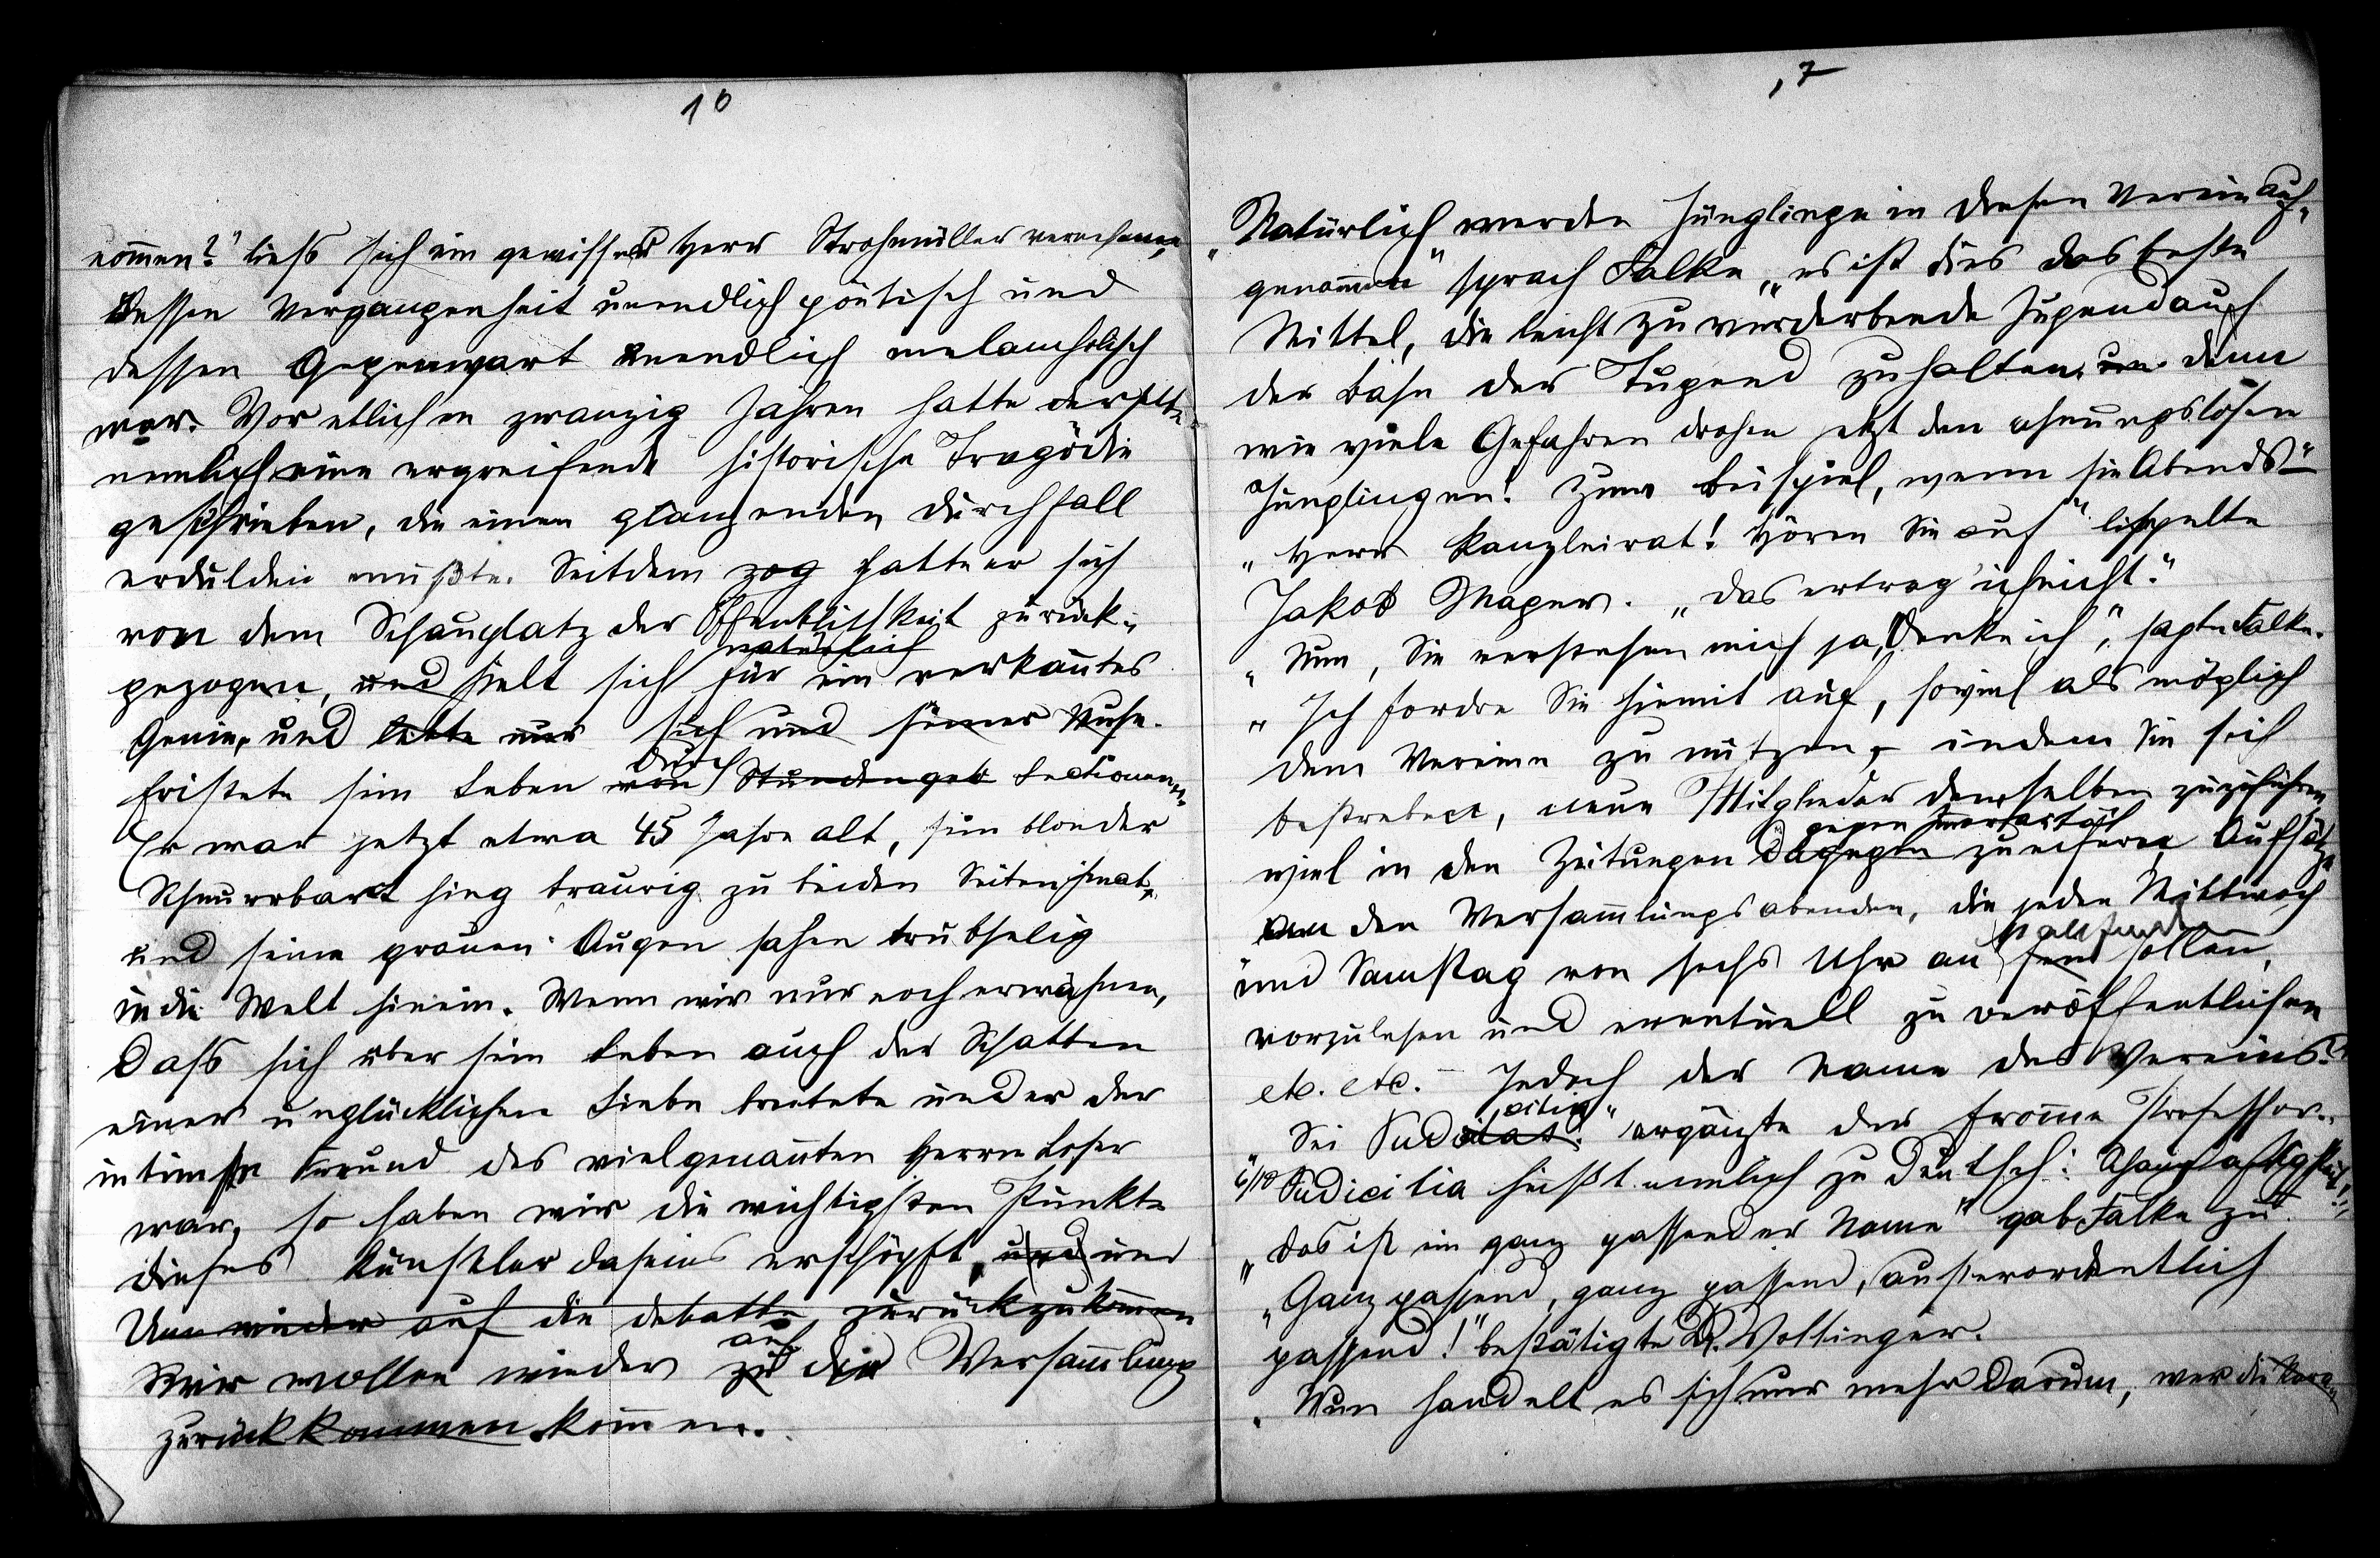 16
nom̄en?" liess sich ein gewisser Herr Strohmüller vernehmen,
dessen Vergangenheit unendlich poëtisch und
dessen Gegenwart unendlich melancholisch
war. Vor etlichen zwanzig Jahren hatte derselbe
nemlich eine ergreifende historische Tragödie
geschrieben, die einen glänzenden Durchfall
erdulden mußte. Seitdem zog hatte er sich
von dem Schauplatz der Öffentlichkeit zurück-
natürlich
gezogen, und hielt sich für ein verkan̄tes
Genie, und lebte nur sich und seiner Muse.
durch
fristete sein Leben von Stundengeb Lectionen
Er war jetzt etwa 45 Jahre alt, sein blonder
Schnurrbart hing traurig zu beiden Seiten herab,
und seine grauen Augen sahen trübselig
in die Welt hinein. Wenn wir nur noch erwähnen,
dass sich über sein Leben auch der Schatten
einer unglücklichen Liebe breitete und er der
intimste Freund des vielgenan̄ten Herrn Loser
war, so haben wir die wichtigsten Punkte
dieses Künstlerdaseins erschöpft, und und
Um wieder auf die Debatte zurückzukom̄en
auf
Wir wollen wieder zu die Versam̄lung
zurückkommen kom̄en.
17
"Natürlich werden Jünglinge in diesen Verein auf-
genom̄en" sprach Falke, "es ist dies das beste
Mittel, die leicht zu verderbende Jugend auf
der Bahn der Tugend zu halten, denn
wie viele Gefahren drohen jetzt den ahnungslosen
Jünglingen! Zum Beispiel, wenn sie Abends"
"Herr Kanzleirat! Hören Sie auf" lispelte
Jakob Mayer. "das ertrag' ich nicht."
"Nun, Sie verstehen mich ja, denke ich", sagte Falke.
"Ich fordre Sie hiemit auf, soviel als möglich
dem Vereine zu nützen, indem Sie sich
bestreben, neue Mitglieder demselben zuzuführen,
gegen
viel in den Zeitungen dagegen zu eifern, Aufsätze
an den Versam̄lungsabenden, die jeden Mittwoch
stattfinden
und Samstag von sechs Uhr an sollen,
vorzulesen und eventuell zu veröffentlichen
etc. etc. - Jedoch der Name des Vereins?"
citia"
Sei Pudicitas." ergänzte der from̄e Professor.
"Pudicitia heißt nemlich zu deutsch: Schamhaftigkeit!"
"das ist ein ganz passender Name" gab Falke zu.
"Ganz passend, ganz passend, außerordentlich
passend!" bestätigte Dr. Woltinger.
"Nun handelt es sich nur mehr darum, wer die